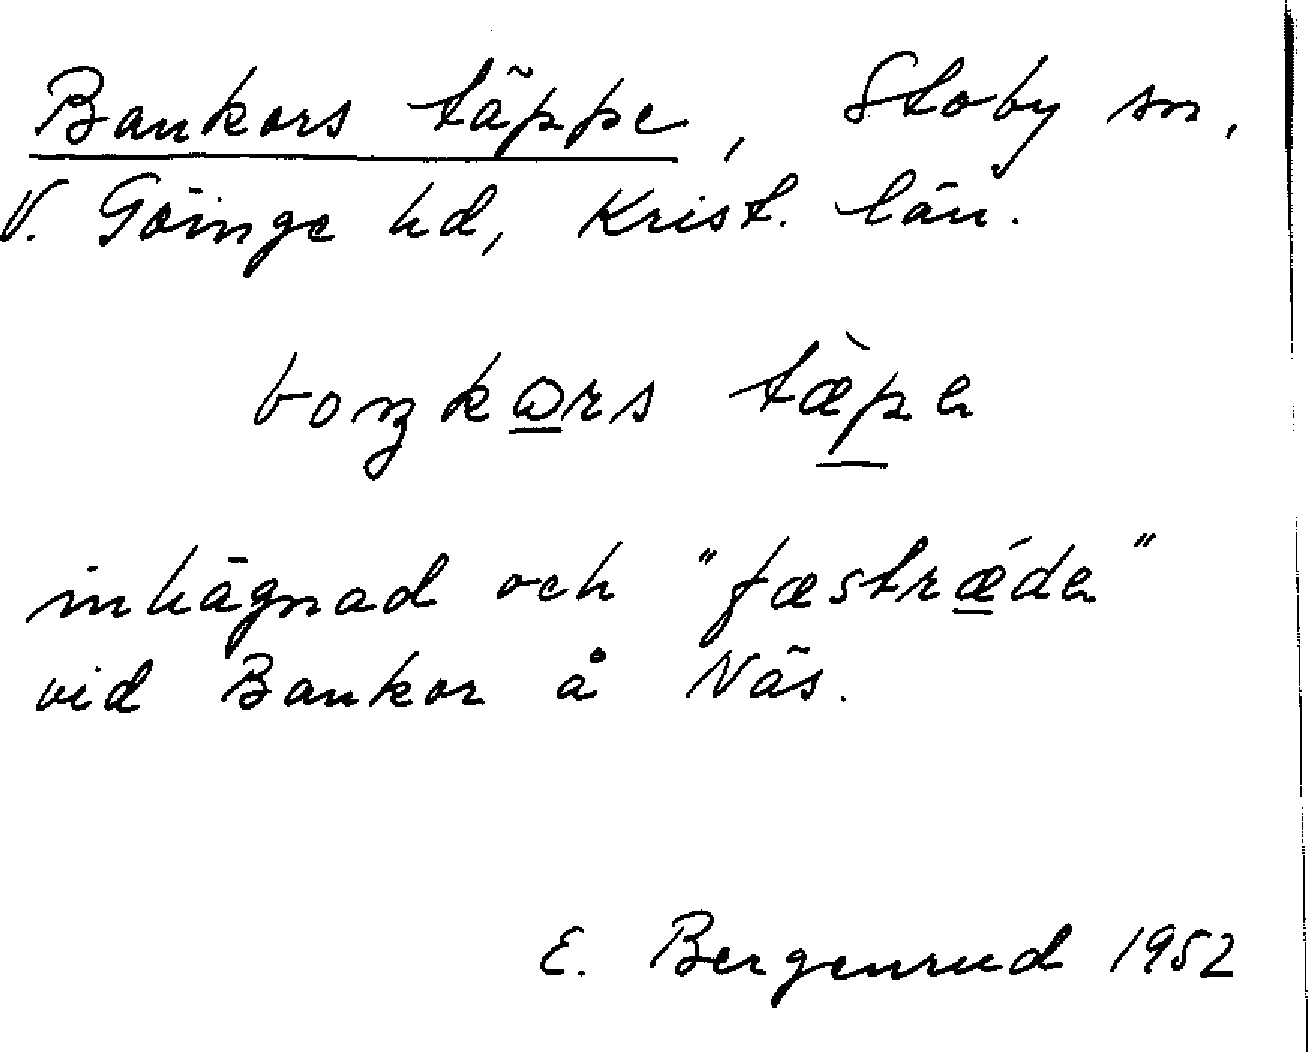 Bankors täppe, Stoby sn,
V. Göinge hd, Krist. län.
boŋkɷrs tæ̀pa
inhägnad och "fæstrǽda"
vid Bankor å Näs.
E. Bergenrud 1952